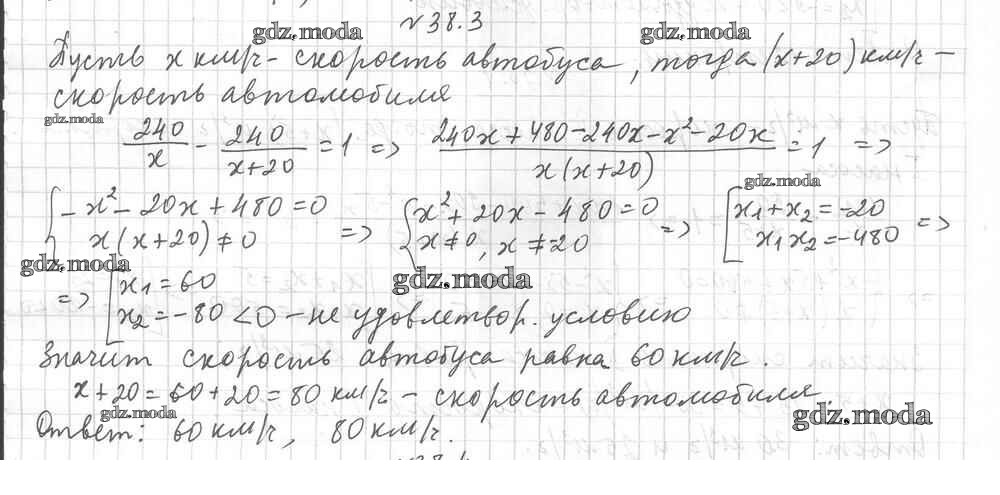 №38.3
gdz.moda gdz.moda
Пусть x км/ч - скорость автобуса, тогда (x+20) км/ч -
скорость автомобиля
gdz.moda
240/x - 240/(x+20) = 1 => (240x+480-240x-x²-20x)/(x(x+20)) = 1 =>
gdz.moda
{-x²-20x+480=0 x(x+20)≠0 => {x²+20x-480=0 x≠0, x≠-20 => [x₁+x₂=-20 x₁x₂=-480 =>
gdz.moda gdz.moda
=> [x₁=60 x₂=-80<0 - не удовлетвор. условию
Значит скорость автобуса равна 60 км/ч.
x+20=60+20=80 км/ч - скорость автомобиля.
gdz.moda gdz.moda
Ответ: 60 км/ч, 80 км/ч.